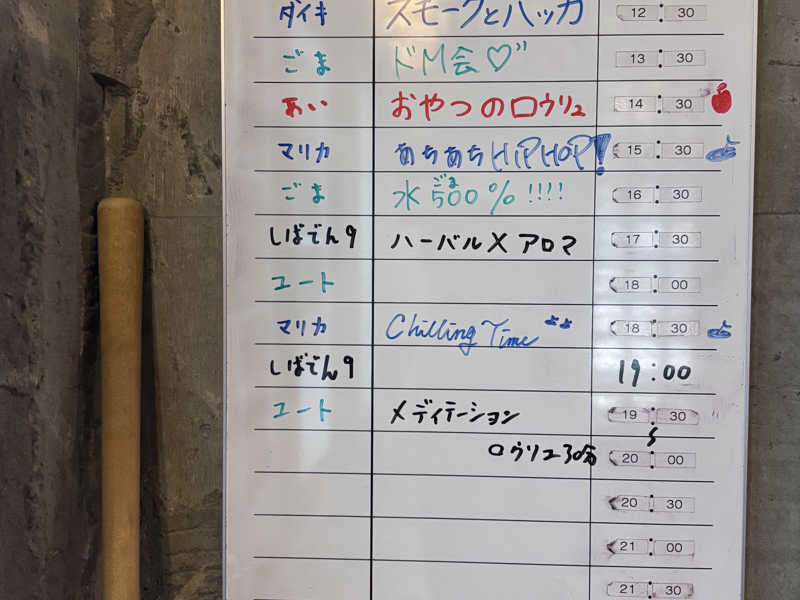 ダイキ スモークとハッカ 12:30
ごま ドM会♡" 13:30
あい おやつのロウリュ 14:30
マリカ あちあちHIPHOP! 15:30
ごま 水500%!!!! 16:30
ごま
しばでん9 ハーバル×アロマ 17:30
ユート 18:00
マリカ Chilling Time 18:30
しばでん9 19:00
ユート メディテーション 19:30
ロウリュ30分 20:00
20:30
21:00
21:30